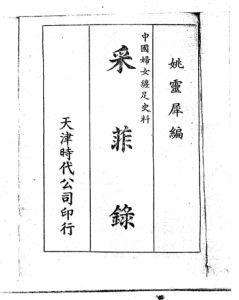 姚靈犀編
中國婦女纏足史料
采菲錄
天津時代公司印行